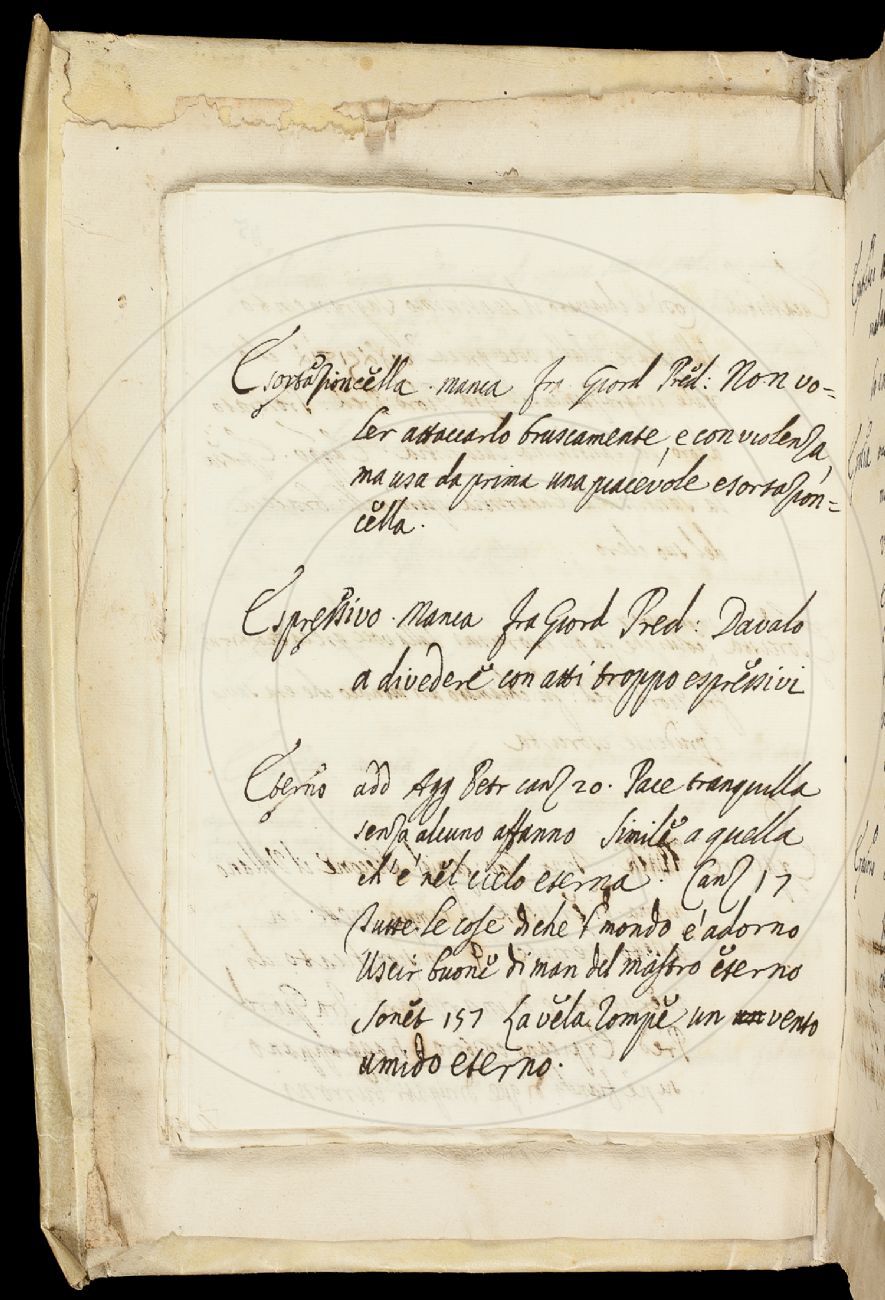 Esortazioncella. manca fra Giord Pred: Non vo=
ler attaccarlo bruscamente, e con violenza,
ma usa da prima una piacevole esortazion=
cella.
Espressivo. Manca fra Giord Pred: Davalo
a divedere con atti troppo espressivi
Eterno add Agg Petr canz 20. Pace tranquilla
senza alcuno affanno Simile a quella
ch'è nel cielo eterna. Canz 17
Tutte le cose di che 'l mondo è adorno
Uscir buone di man del mastro eterno
Sonet 157 La vela rompe un vento
umido eterno.